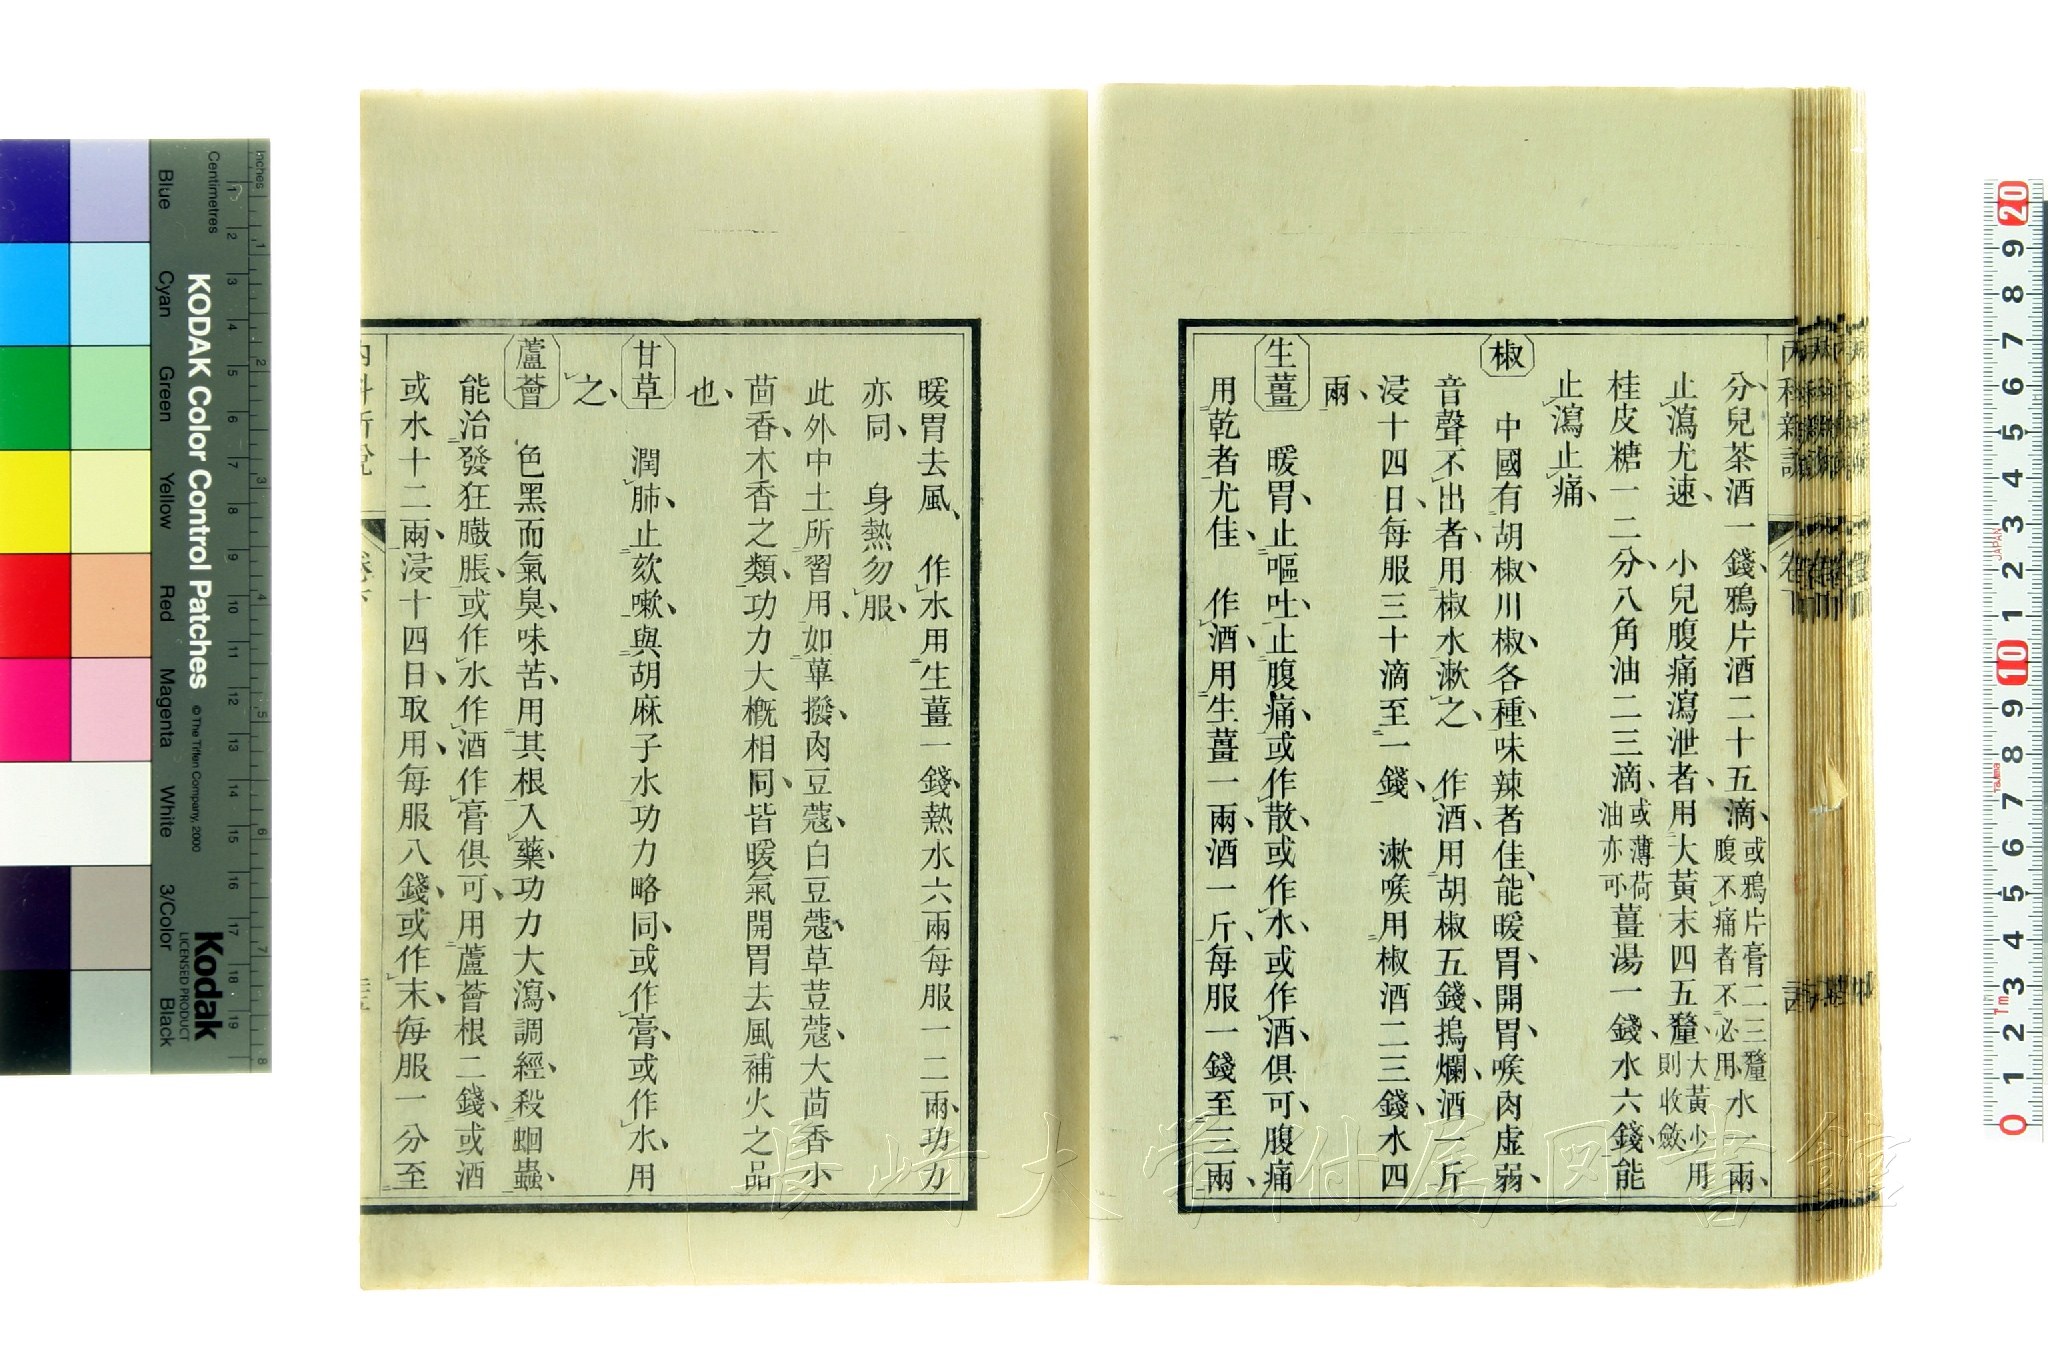 分兒茶酒一錢鴉片酒二十五滴、或鴉片膏二三釐腹不痛者不必用水一兩、
止瀉尤速、小兒腹痛瀉泄者、用大黃末四五釐、大黃少用則收斂
桂皮糖一二分、八角油二三滴、或薄荷油亦可薑湯一錢、水六錢、能
止瀉止痛、
椒 中國有胡椒、川椒、各種、味辣者佳、能暖胃、開胃、喉肉虛弱、
音聲不出者、用椒水漱之、作酒、用胡椒五錢、搗爛、酒一斤
浸十四日、每服三十滴至一錢、漱喉用椒酒二三錢、水四
兩、
生薑 暖胃、止嘔吐、止腹痛、或作散、或作水、或作酒俱可、腹痛
用乾者尤佳、作酒、用生薑一兩、酒一斤、每服一錢至三兩、
暖胃去風、作水用生薑一錢、熱水六兩每服一二兩、功力
亦同、身熱勿服、
此外中土所習用、如蓽撥、肉豆蔻、白豆蔻、草荳蔻、大茴香小
茴香、木香之類、功力大概相同、皆暖氣開胃去風補火之品
也、
甘草 潤肺、止欬嗽、與胡麻子水功力略同、或作膏、或作水、用
之、
蘆薈 色黑而氣臭、味苦、用其根入藥、功力大瀉、調經、殺蛔蟲、
能治發狂臌脹、或作水作酒作膏俱可、用蘆薈根二錢、或酒
或水十二兩、浸十四日、取用、每服八錢、或作末、每服一分至
內科新說 卷下
KODAK Color Control Patches
© The Tiffen Company, 2000
Kodak
LICENSED PRODUCT
Inches
Centimetres
Blue
Cyan
Green
Yellow
Red
Magenta
White
3/Color
Black
長崎大学附属図書館